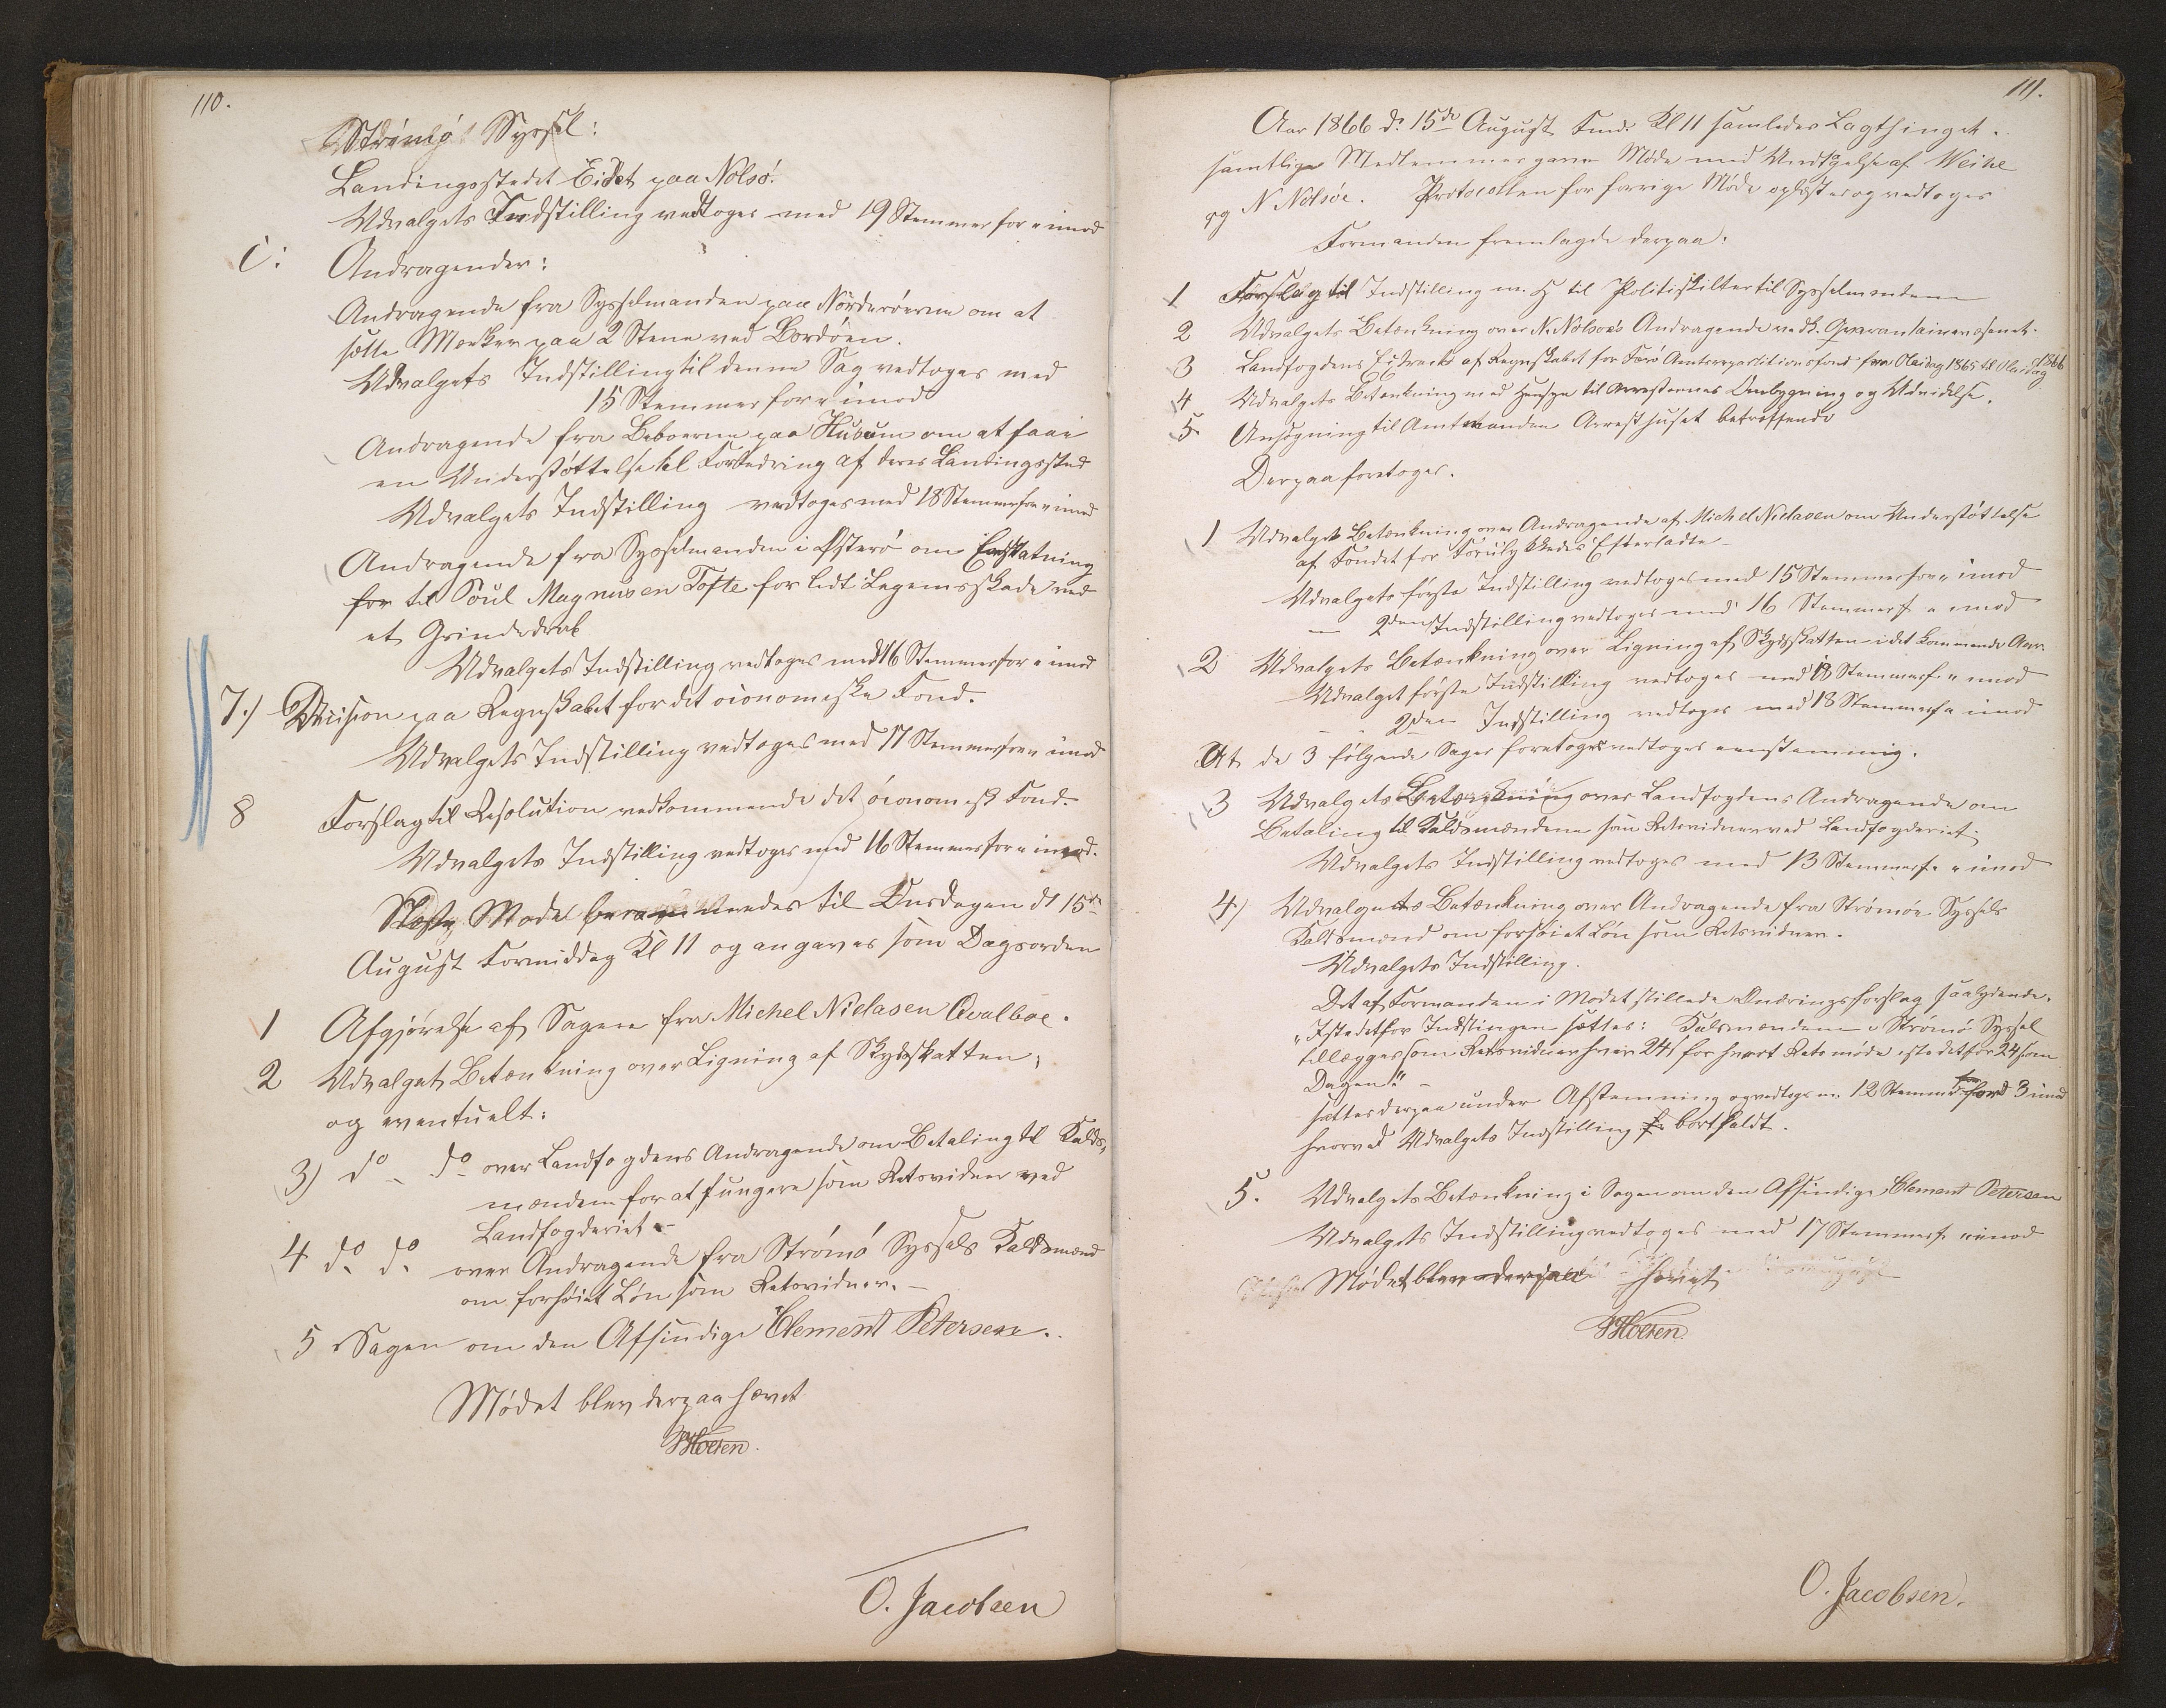 110.
Strömø Syssel:
Landingsstedet Eidet paa Nolsö.
Udvalgets Indstilling vedtoges med 19 Stemmer for " imod
C: Andragender:
Andragende fra Sysselmanden paa Norderöerne om at
sætte Mærker paa 2 Stene ved Bordöen.
Udvalgets Indstilling til denne Sag vedtoges med
15 Stemmer for " imod
Andragende fra Beboerne paa Husum om at faae
en Understøttelse til Forbedring af deres Landingssted
Udvalgets Indstilling vedtoges med 18 Stemmer for " imod
Andragende fra Sysselmanden i Østerö om Erstatning
for til Poul Magnusen Tofte for lidt Legemsskade ved
et Grindedrab
Udvalgets Indstilling vedtoges med 16 Stemmer for " imod
7.) Decision paa Regnskabet for det oeconomiske Fond.
Udvalgets Indstilling vedtoges med 17 Stemmer for " imod
8 Forslag til Resolution vedkommende det öconomisk Fond.
Udvalgets Indstilling vedtoges med 16 Stemmer for " imod.
Næste Møde berammedes til Onsdagen d. 15de
August Formiddag Kl 11 og angaves som Dagsorden
1 Afgjørelse af Sagen fra Michel Niclasen Qvalböe.
2 Udvalgets Betænkning over Ligning af Skydsskatten,
og eventuelt:
3) do do over Landfogdens Andragende om Betaling til Kalds-
mændene for at fungere som Retsvidner ved
Landfogderiet.-
4 do do over Andragende fra Strömö Syssels Kaldsmænd
om forhöiet Lön som Retsvidner.-
5 Sagen om den Afsindige Clement Petersen.
Mødet blev derpaa hævet
O. Jacobsen
111.
Aar 1866 d. 15de August Fmd. Kl 11 samledes Lagthinget.
samtlige Medlemmer gave Møde med Undtagelse af Weihe
og N Nolsöe. Protocollen for forrige Møde oplæstes og vedtoges
Formanden fremlagde derpaa:
1 Forslag til Indstilling m. H. til Politiskilter til Sysselmændene
2 Udvalgets Betænkning over N. Nolsöes Andragende vedk. Qvarantainevæsenet.
3 Landfogdens Extract af Regnskabet for Færö Amtsrepartitionsfond fra Olaidag 1865 til Olaidag 1866
4 Udvalgets Betænkning med Hensyn til Arresternes Ombygning og Udvidelse.
5 Ansögning til Amtmanden Arresthuset betræffende
Derpaa foretoges.
1 Udvalgets Betænkning over Andragende af Michel Niclasen om Understøttelse
af Fondet for Forulykkedes Efterladte-
Udvalgets første Indstilling vedtoges med 15 Stemmer for " imod
— 2den Indstilling vedtoges med 16 Stemmer f. " imod
2 Udvalgets Betænkning over Ligning af Skydsskatten i det kommende Aar.
Udvalget første Indstilling vedtoges med 18 Stemmer f. " imod
- 2den Indstilling vedtoges med 18 Stemmer f " imod
At de 3 følgende Sager foretoges vedtoges eenstemmig.
3 Udvalgets Betænkning over Landfogdens Andragende om
Betaling til Kaldsmændene som Retsvidner ved Landfogderiet.
Udvalgets Indstilling vedtoges med 13 Stemmer f. " imod
4) Udvalgets Betænkning over Andragende fra Strömöe Syssels
Kaldsmænd om forhöiet Lön som Retsvidner.
Udvalgets Indstilling.
Det af Formanden i Mødet stillede Ændringsforslag saalydende.
"Istedetfor Indstillingen sættes: Kalsmændene i Strömö Syssel
tillægges som Retsvidner hver 24 s for hvert Retsmøde istedetfor 24 s om
Dagen" -
sattes derpaa under Afstemning og vedtoges m. 12 Stemmer for 3 imod
hvorved Udvalgets Indstilling bortfaldt.
5. Udvalgets Betænkning i Sagen om den Afsindige Clement Petersen
Udvalgets Indstilling vedtoges med 17 Stemmer f. " imod
Mødet blev derpaa hævet
O. Jacobsen.